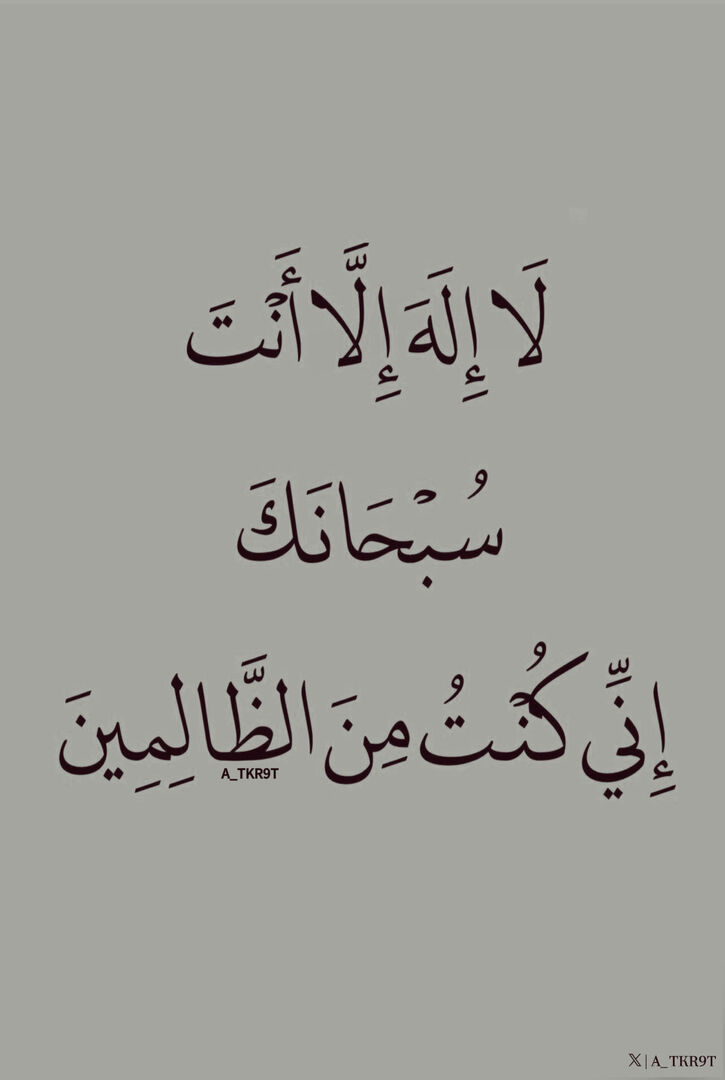 لَا إِلَهَ إِلَّا أَنْتَ
سُبْحَانَكَ
إِنِّي كُنْتُ مِنَ الظَّالِمِينَ
A_TKR9T
𝕏 | A_TKR9T